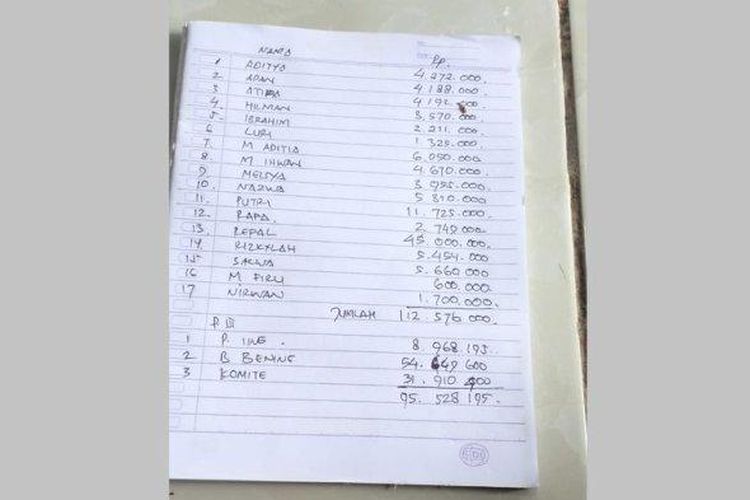 NAMA Rp.
1 ADITYA 4.272.000.
2. ADAN 4.188.000.
3 ATIRA 4.192.000.
4. HILMAN 3.570.000.
5. IBRAHIM 2.211.000.
6 LURI 1.325.000.
7. M ADITIA 6.050.000
8. M IHWAN 4.670.000.
9. MELSYA 3.955.000.
10. NAZWA 5.310.000
11. PUTRI 11.725.000
12. RAPA. 2.749.000.
13. REPAL 45.000.000.
14. RIZKYLAH 5.454.000
15 SALWA 5.660.000
16 M FIRLI 600.000.
17 NIRWAN 1.700.000.
JUMLAH 112.576.000.
P. III
1 P. IING. 8.968.195.
2 B BENING 54.649.600
3 KOMITE 31.910.400
95.528.195.